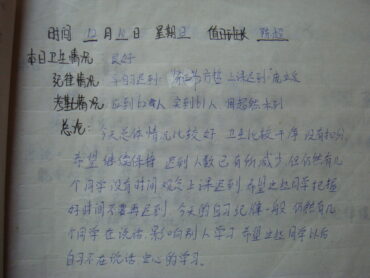 时间 12月 日 星期 值日班长
本日卫生情况 良好
纪律情况 早自习迟到 上课迟到
考勤情况 应到62人 实到61人 未到
总论:
今天总体情况比较好 卫生比较干净 没有扣分
希望继续保持 迟到人数已有所减少,但仍然有几
个同学没有时间观念上课迟到 希望这些同学把握
好时间不要再迟到,今天的自习纪律一般 仍然有几
个同学在说话,影响别人学习,希望这些同学以后
自习不在说话,安心的学习。